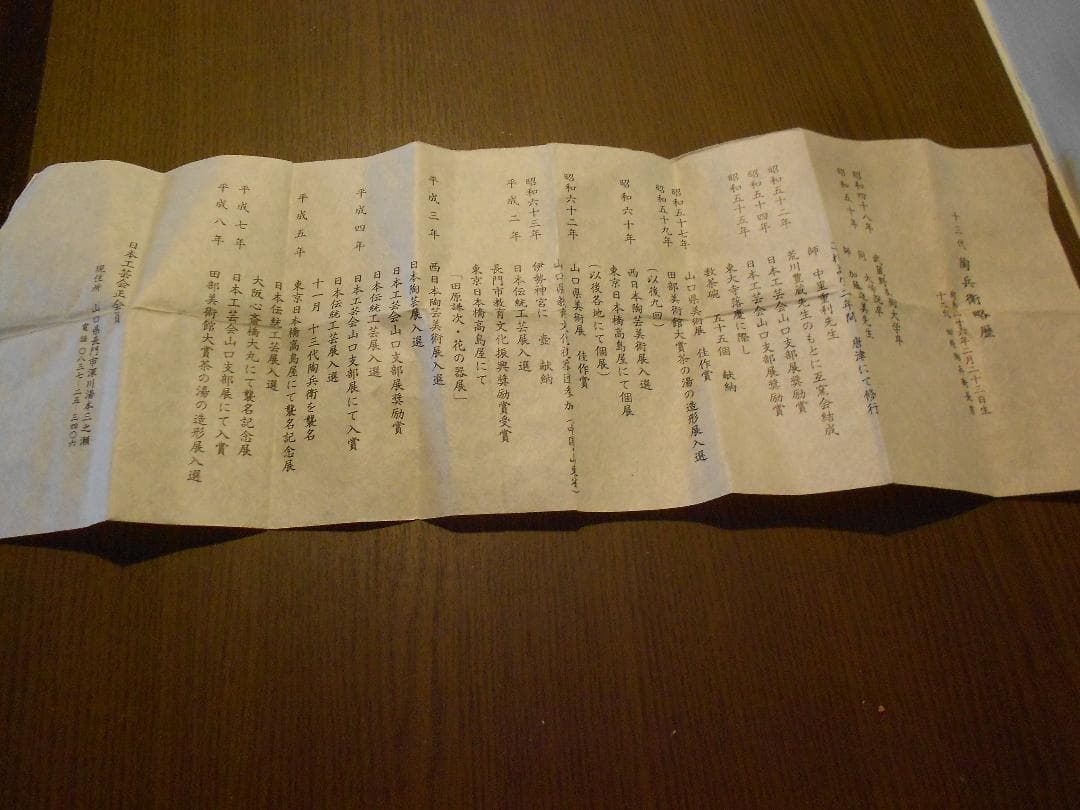 十三代陶兵衛略歴
昭和四十八年
武蔵野美術大学卒
同 大学
昭和五十年
師 加藤
二年間 唐津にて修行
師 中里重利先生
昭和五十二年
荒川豊蔵先生のもとに
会結成
昭和五十四年
日本工芸会山口支部展奨励賞
昭和五十五年
日本工芸会山口支部展奨励賞
東大寺落慶に際し
数茶碗 五十五個 献納
昭和五十七年
山口県美術展 佳作賞
昭和五十九年
田部美術館大賞茶の湯の造形展入選
(以後九回)
西日本陶芸美術展入選
昭和六十年
東京日本橋高島屋にて個展
(以後各地にて個展)
昭和六十二年
山口県美術展 佳作賞
山口県教育文化
昭和六十三年
伊勢神宮に 壺 献納
平成二年
日本伝統工芸展入選
長門市教育文化振興奨励賞受賞
東京日本橋高島屋にて
「田原謙次・花の器展」
平成三年
西日本陶芸美術展入選
日本陶芸展入選
日本工芸会山口支部展奨励賞
日本伝統工芸展入選
平成四年
日本工芸会山口支部展にて入賞
日本伝統工芸展入選
十一月 十三代陶兵衛を襲名
平成五年
東京日本橋高島屋にて襲名記念展
日本伝統工芸展入選
大阪心斎橋大丸にて襲名記念展
平成七年
日本工芸会山口支部展にて入賞
平成八年
田部美術館大賞茶の湯の造形展入選
日本工芸会正会員
現住所 山口県長門市深川湯本二之瀬
電話 〇八三七-二五-三四〇六